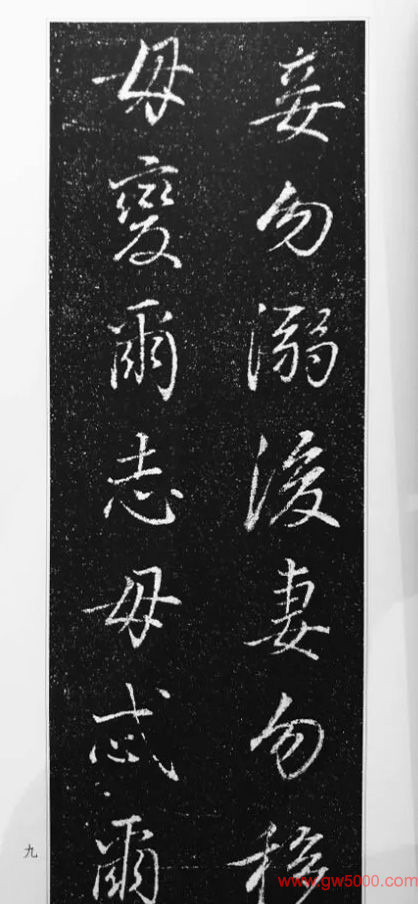 妾勿溺後妻勿移
毋變爾志毋忒爾
九
www.gw5000.com